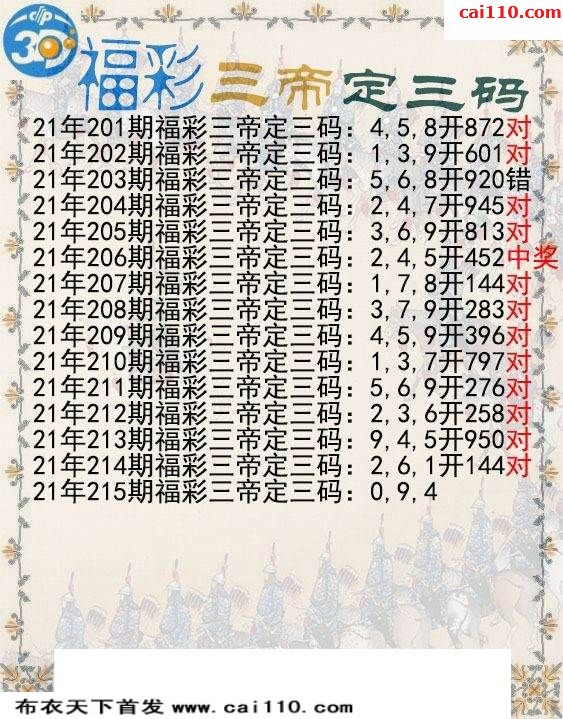 cai110.com
3D
福彩三帝定三码
21年201期福彩三帝定三码：4,5,8开872对
21年202期福彩三帝定三码：1,3,9开601对
21年203期福彩三帝定三码：5,6,8开920错
21年204期福彩三帝定三码：2,4,7开945对
21年205期福彩三帝定三码：3,6,9开813对
21年206期福彩三帝定三码：2,4,5开452中奖
21年207期福彩三帝定三码：1,7,8开144对
21年208期福彩三帝定三码：3,7,9开283对
21年209期福彩三帝定三码：4,5,9开396对
21年210期福彩三帝定三码：1,3,7开797对
21年211期福彩三帝定三码：5,6,9开276对
21年212期福彩三帝定三码：2,3,6开258对
21年213期福彩三帝定三码：9,4,5开950对
21年214期福彩三帝定三码：2,6,1开144对
21年215期福彩三帝定三码：0,9,4
布衣天下首发 www.cai110.com